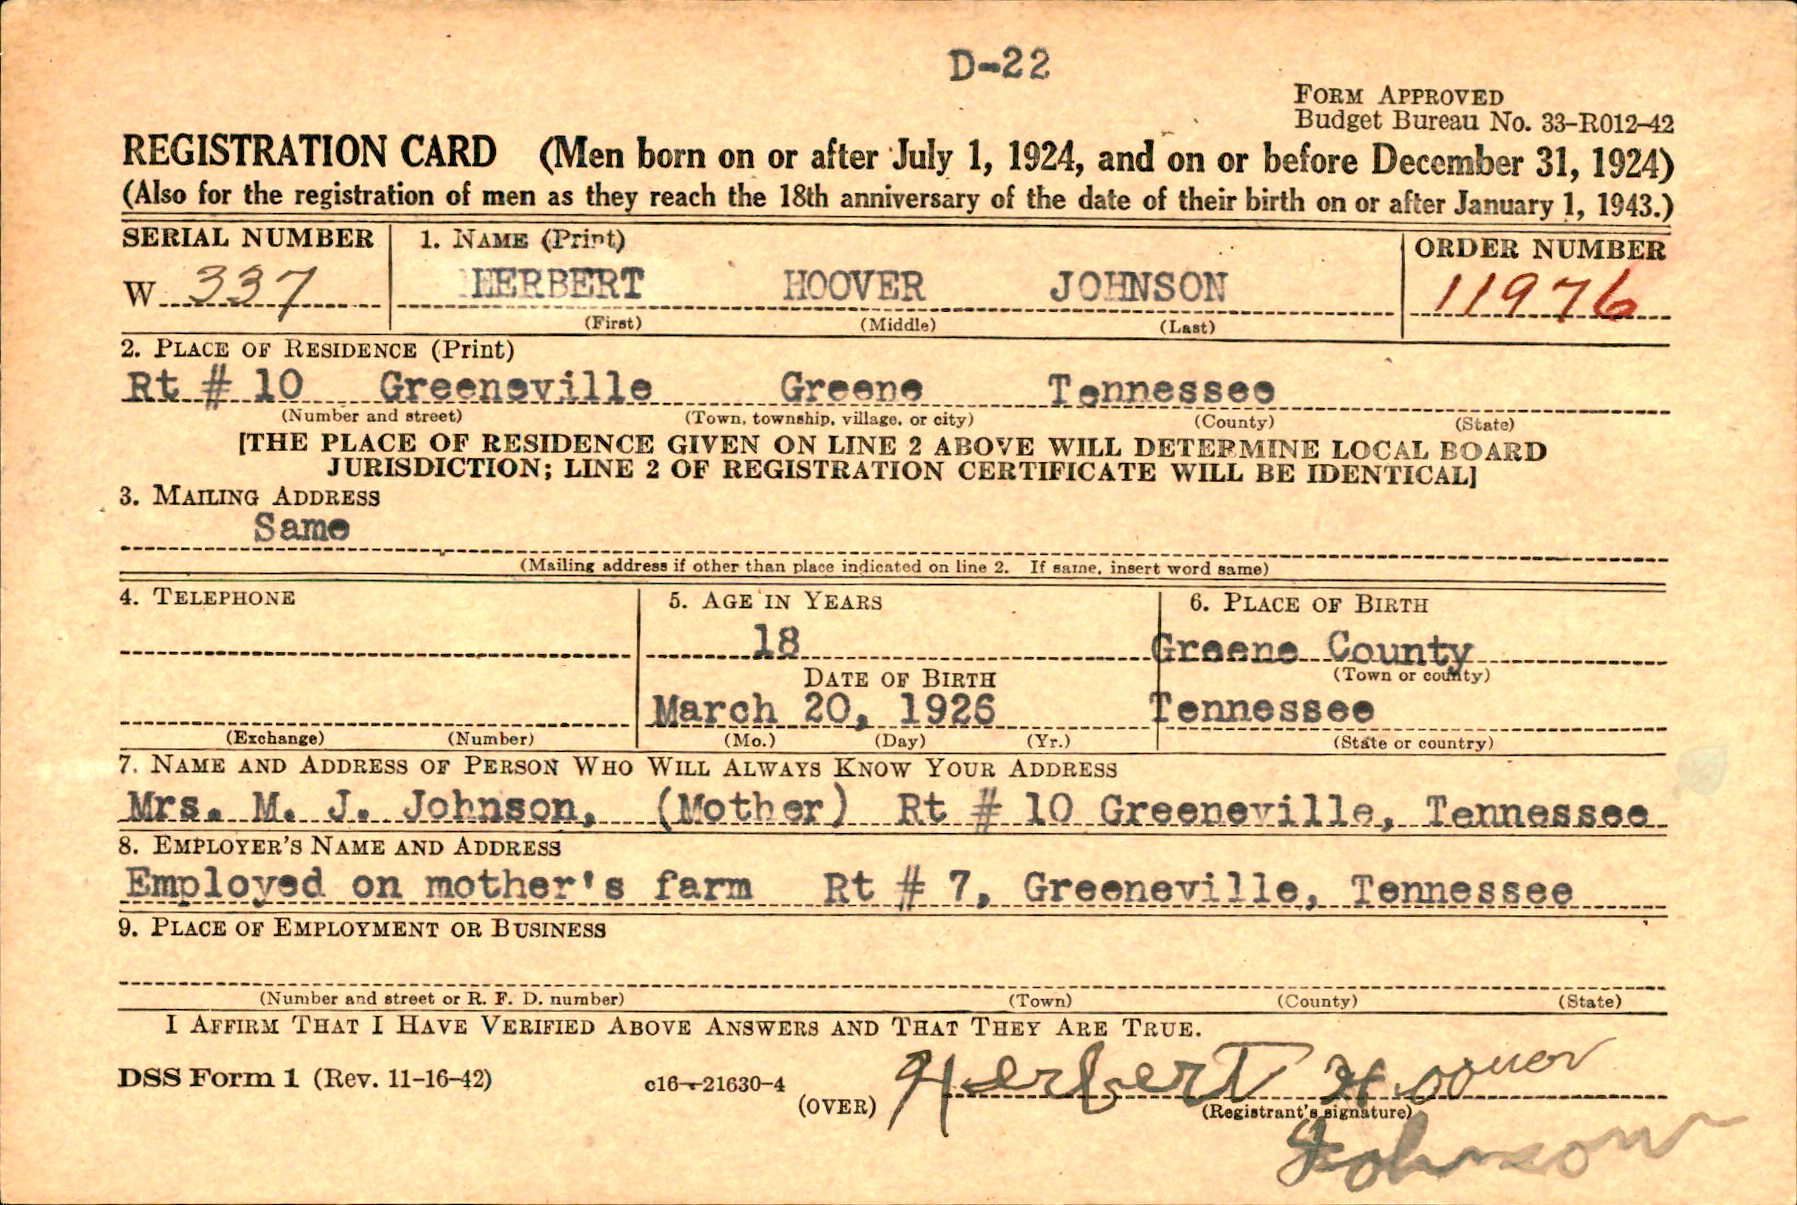 D-22
FORM APPROVED
Budget Bureau No. 33-R012-42
REGISTRATION CARD (Men born on or after July 1, 1924, and on or before December 31, 1924)
(Also for the registration of men as they reach the 18th anniversary of the date of their birth on or after January 1, 1943.)
SERIAL NUMBER 1. NAME (Print) ORDER NUMBER
W 337 HERBERT HOOVER JOHNSON 11976
(First) (Middle) (Last)
2. PLACE OF RESIDENCE (Print)
Rt # 10 Greeneville Greene Tennessee
(Number and street) (Town, township, village, or city) (County) (State)
[THE PLACE OF RESIDENCE GIVEN ON LINE 2 ABOVE WILL DETERMINE LOCAL BOARD
JURISDICTION; LINE 2 OF REGISTRATION CERTIFICATE WILL BE IDENTICAL]
3. MAILING ADDRESS
Same
(Mailing address if other than place indicated on line 2. If same, insert word same)
4. TELEPHONE 5. AGE IN YEARS 6. PLACE OF BIRTH
18 Greene County
DATE OF BIRTH (Town or county)
March 20, 1926 Tennessee
(Exchange) (Number) (Mo.) (Day) (Yr.) (State or country)
7. NAME AND ADDRESS OF PERSON WHO WILL ALWAYS KNOW YOUR ADDRESS
Mrs. M. J. Johnson, (Mother) Rt # 10 Greeneville, Tennessee
8. EMPLOYER'S NAME AND ADDRESS
Employed on mother's farm Rt # 7, Greeneville, Tennessee
9. PLACE OF EMPLOYMENT OR BUSINESS
(Number and street or R. F. D. number) (Town) (County) (State)
I AFFIRM THAT I HAVE VERIFIED ABOVE ANSWERS AND THAT THEY ARE TRUE.
DSS Form 1 (Rev. 11-16-42) c16-21630-4 (OVER) Herbert Hoover
(Registrant's signature)
Johnson